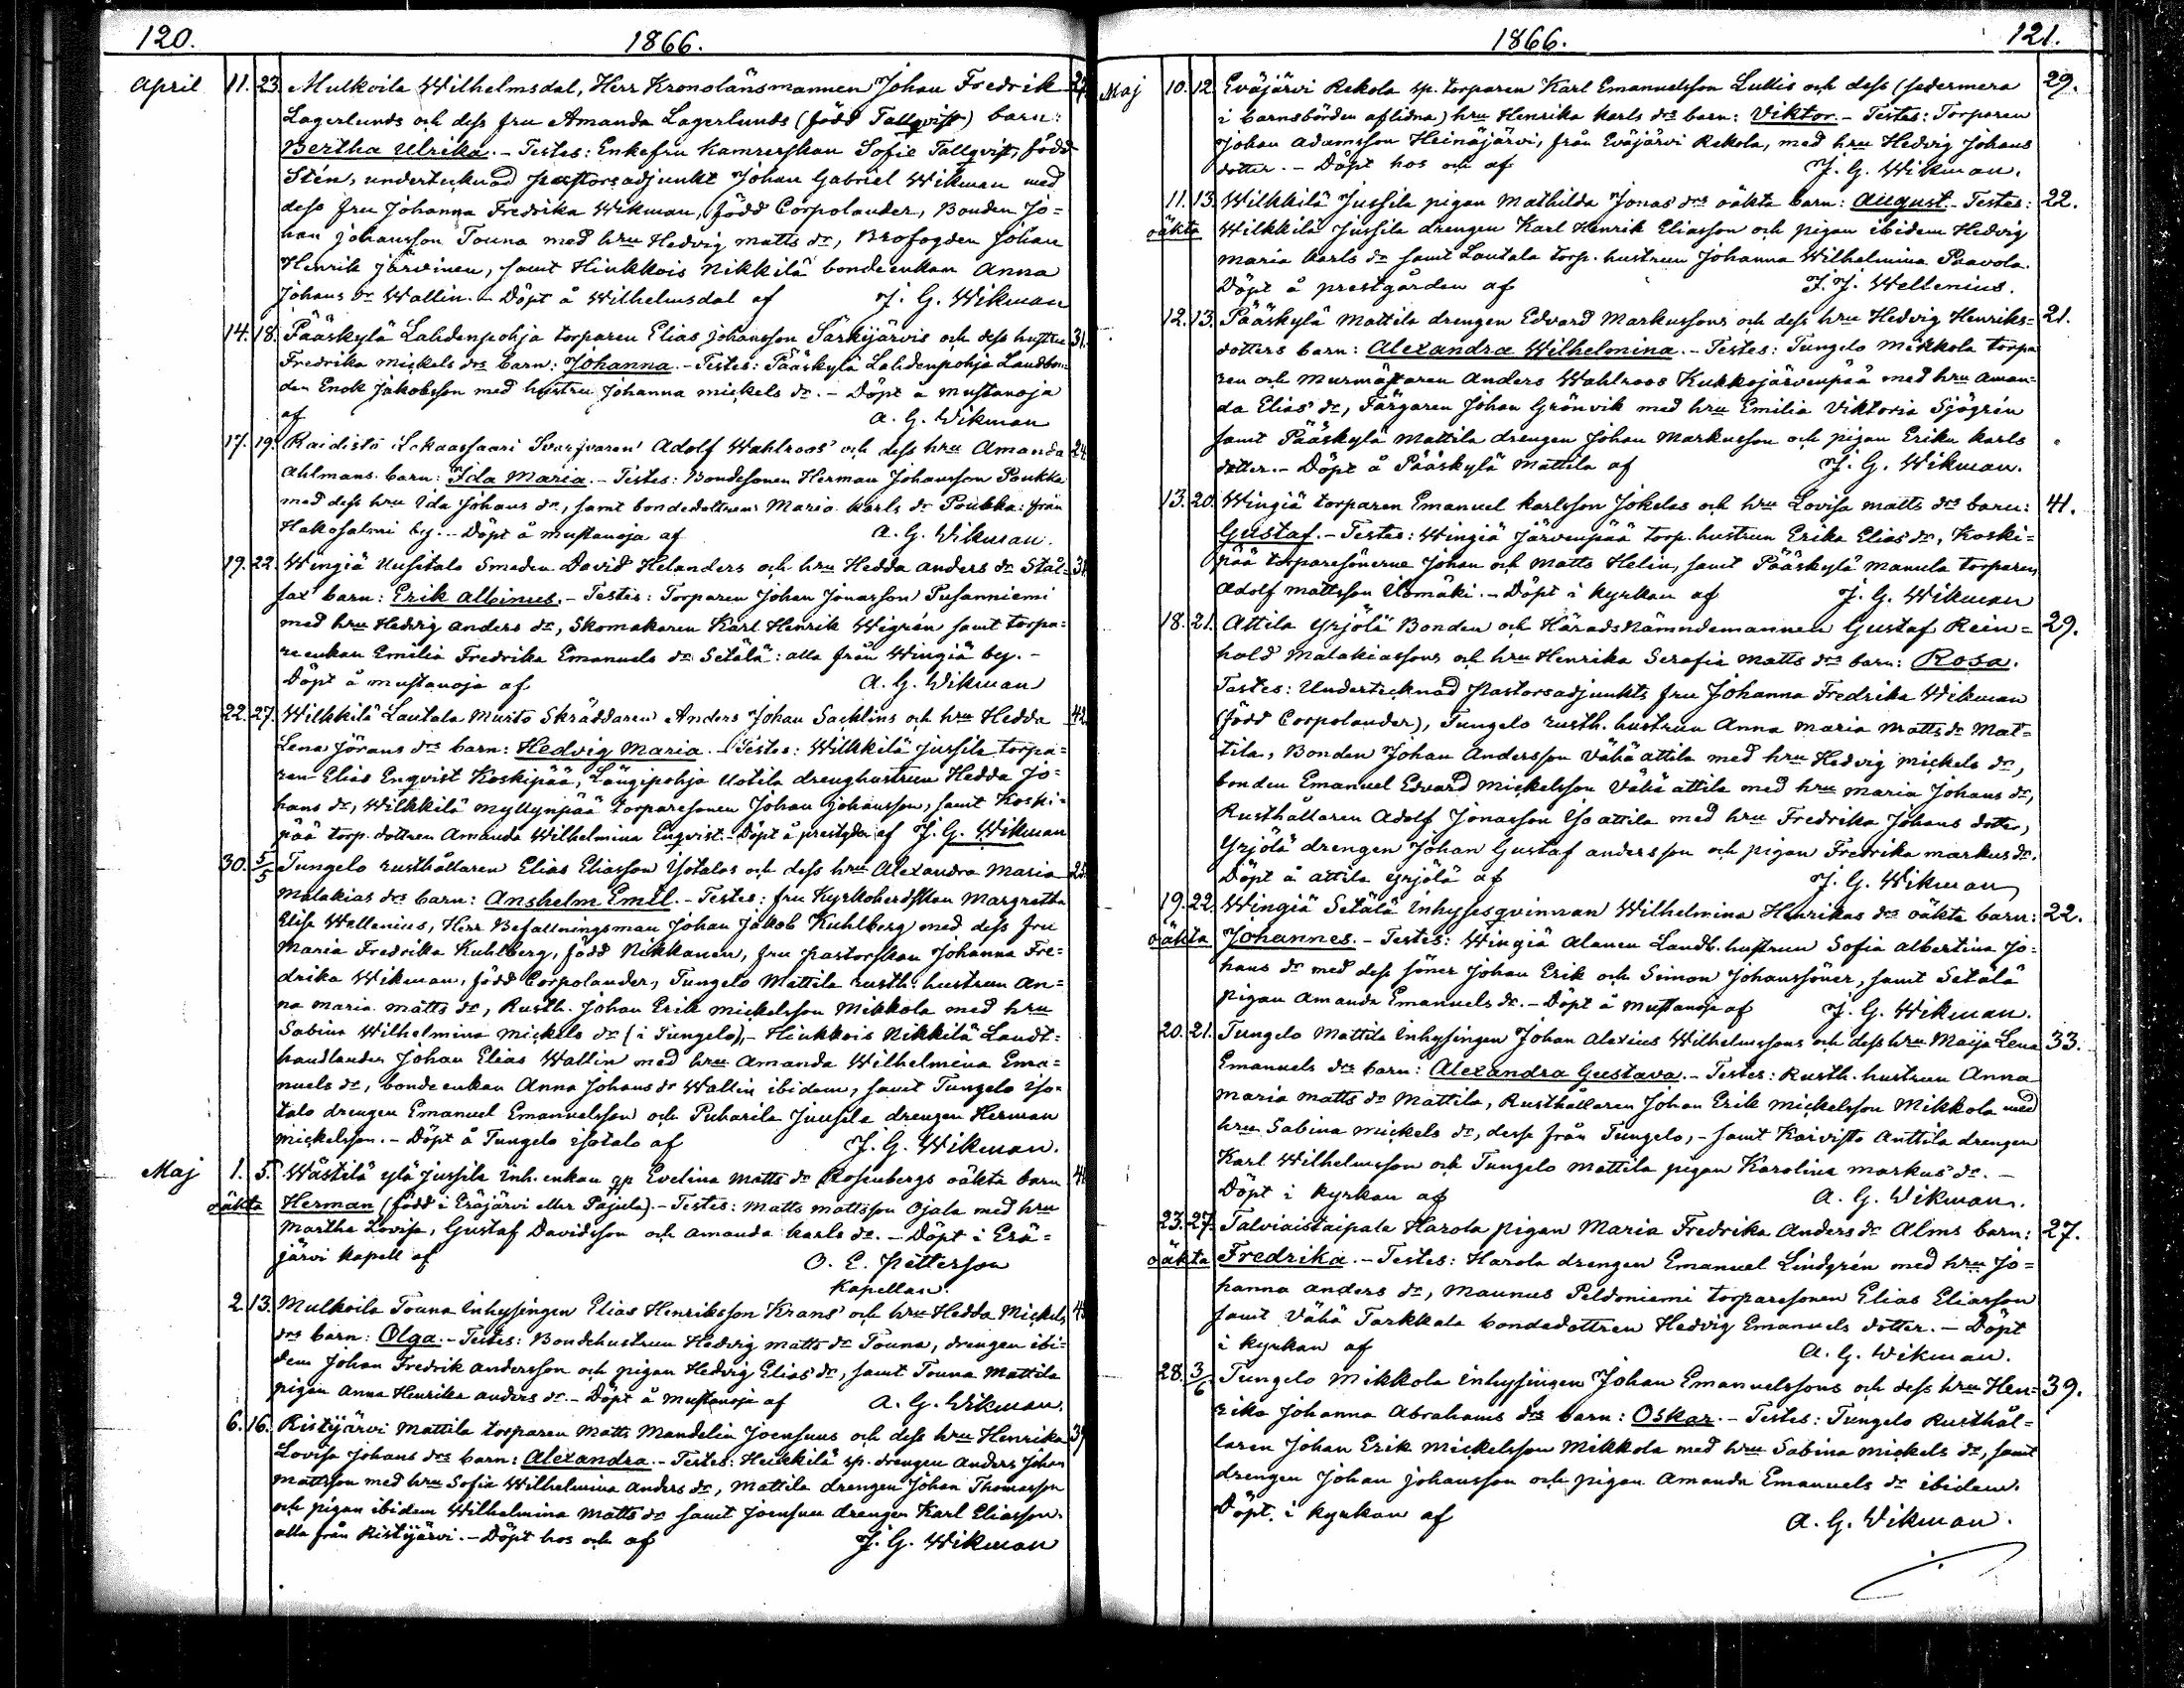 120. 1866.
April 11. 23. Mulkoila Wilhelmsdal, Herr Kronolänsmannen Johan Fredrik 27.
Lagerlunds och dess fru Amanda Lagerlunds (född Tallqvist) barn:
Bertha Ulrika. - Testes: Enkefru Kamrerskan Sofie Tallqvist, född
Stén, undertecknad pastorsadjunkt Johan Gabriel Wikman med
dess fru Johanna Fredrika Wikman, född Corpolander, Bonden Jo=
han Johansson Touna med hru Hedvig Matts dr, Brofogden Johan
Henrik Järvinen, samt Hinkkois Nikkilä bondeenkan Anna
Johans dr Wallin. - Döpt å Wilhelmsdal af J. G. Wikman
14. 18. Pääskylä Lahdenpohja torparen Elias Johansson Särkijärvis och dess hustru 31.
Fredrika Mickels drs barn: Johanna. - Testes: Pääskylä Lahdenpohja Landbon=
den Enok Jakobsson med hustru Johanna Mickels dr. - Döpt å Mustanoja
af A. G. Wikman
17. 19. Raidistö Lokaassaari Svarfvaren Adolf Wahlroos' och dess hru Amanda 24.
Ahlmans barn: Ida Maria. - Testes: Bondesonen Herman Johansson Poukka
med dess hru Ida Johans dr, samt bondedottren Maria Karls dr Poukka: från
Hakosalmi by. - Döpt å Mustanoja af A. G. Wikman.
19. 22. Wingiä Uusitalo Smeden David Helanders och hru Hedda Anders dr Stål=
fax barn: Erik Albinus. - Testes: Torparen Johan Jonasson Pusanniemi
med hru Hedvig Anders dr, Skomakaren Karl Henrik Wigrén samt torpa=
reenkan Emilia Fredrika Emanuels dr Setälä: alla från Wingiä by. -
Döpt å Mustanoja af A. G. Wikman
22. 27. Wilkkilä Lautala Muito Skräddaren Anders Johan Sacklins och hru Hedda 42.
Lena Jörans drs barn: Hedvig Maria. - Testes: Wilkkilä Jussila torpa=
ren Elias Enqvist Koskipää, Längipohja Uotila drenghustrun Hedda Jo=
hans dr, Wilkkilä Myllynpää torparesonen Johan Johansson, samt Koski=
pää torp. dottren Amanda Wilhelmina Enqvist. - Döpt å prestgden af J. G. Wikman
30. 5/5 Tungelo rusthållaren Elias Eliasson Isotalos och dess hru Alexandra Maria
Malakias drs barn: Anshelm Emil. - Testes: fru Kyrkoherdskan Margretha
Elisa Wellenius, Herr Befallningsman Johan Jakob Kuhlberg med dess fru
Maria Fredrika Kuhlberg, född Nikkanen, fru pastorskan Johanna Fre=
drika Wikman, född Corpolander, Tungelo Mattila rusth. hustrun An=
na Maria Matts dr, Rusth. Johan Erik Mickelsson Mikkola med hru
Sabina Wilhelmina Mickels dr (i Tungelo), - Hinkkois Nikkilä Landt=
handlanden Johan Elias Wallin med hru Amanda Wilhelmina Ema=
nuels dr, bondeenkan Anna Johans dr Wallin ibidem, samt Tungelo Iso=
talo drengen Emanuel Emanuelsson och Puharila Juusela drengen Herman
Mickelsson. - Döpt å Tungelo Isotalo af J. G. Wikman.
Maj 1. 5. Wästilä Ylä Jussila Inh. enkan qp Evelina Matts dr Rosenbergs oäkta barn
oäkta Herman (född i Eräjärvi eller Pajula). - Testes: Matts Mattsson Ojala med hru
Martha Lovisa, Gustaf Davidsson och Amanda Karls dr. - Döpt i Erä=
järvi kapell af O. E. Petterson
Kapellan.
2. 13. Mulkoila Touna Inhysingen Elias Henriksson Krans' och hru Hedda Mickels
drs barn: Olga. - Testes: Bondehustrun Hedvig Matts dr Touna, drengen ibi=
dem Johan Fredrik Andersson och pigan Hedvig Elias dr, samt Touna Mattila
pigan Anna Henrika Anders dr. - Döpt å Mustanoja af A. G. Wikman
6. 16. Ristijärvi Mattila torparen Matts Mandelin Joensuus och dess hru Henrika
Lovisa Johans drs barn: Alexandra. - Testes: Heikkilä sp. drengen Anders Johan
Mattsson med hru Sofia Wilhelmina Anders dr, Mattila drengen Johan Thomasson
och pigan ibidem Wilhelmina Matts dr samt Joensuu drengen Karl Eliasson
alla från Ristijärvi. - Döpt hos och af J. G. Wikman
1866. 121.
Maj 10. 12. Eväjärvi Rekola sp. torparen Karl Emanuelsson Lukkis och dess (sedermera 29.
i barnsbörden aflidna) hru Henrika Karls drs barn: Viktor. - Testes: Torparen
Johan Adamsson Heinäjärvi, från Eväjärvi Rekola, med hru Hedvig Johans
dotter. - Döpt hos och af J. G. Wikman.
11. 13. Wilkkilä Jussila pigan Mathilda Jonas' drs oäkta barn: August. - Testes: 22.
oäkta Wilkkilä Jussila drengen Karl Henrik Eliasson och pigan ibidem Hedvig
Maria Karls dr samt Lautala torp. hustrun Johanna Wilhelmina Paavola.
Döpt å prestgården af J. J. Wellenius.
12. 13. Pääskylä Mattila drengen Edvard Markussons och dess hru Hedvig Henriks= 21.
dotters barn: Alexandra Wilhelmina. - Testes: Tungelo Mikkola torpa
ren och Murmästaren Anders Wahlroos Kukkojärvenpää med hru Aman=
da Elias' dr, Färgaren Johan Grönvik med hru Emilia Viktoria Sjögrén
samt Pääskylä Mattila drengen Johan Markusson och pigan Erika Karls
dotter. - Döpt å Pääskylä Mattila af J. G. Wikman.
13. 20. Wingiä torparen Emanuel Karlsson Jokelas och hru Lovisa Matts drs barn: 41.
Gustaf. - Testes: Wingiä Järvenpää torp. hustrun Erika Elias' dr, Koski=
pää torparesönerne Johan och Matts Helin, samt Pääskylä Manula torparen
Adolf Mattsson Ulomäki. - Döpt i kyrkan af J. G. Wikman
18. 21. Attila Yrjölä Bonden och Häradsnämndemannen Gustaf Rein= 29.
hold Malakiassons och hru Henrika Serafia Matts drs barn: Rosa.
Testes: Undertecknad Pastorsadjunkts fru Johanna Fredrika Wikman
(född Corpolander), Tungelo rusth. hustrun Anna Maria Matts dr Mat=
tila, Bonden Johan Andersson Vähäattila med hru Hedvig Mickels dr,
bonden Emanuel Edvard Mickelsson Vähä attila med hru Maria Johans dr,
Rusthållaren Adolf Jonasson Iso attila med hru Fredrika Johans dotter,
Yrjölä drengen Johan Gustaf Andersson och pigan Fredrika Markus dr.
Döpt å Attila Yrjölä af J. G. Wikman
19. 22. Wingiä Setälä Inhysesqvinnan Wilhelmina Henrikas drs oäkta barn: 22.
oäkta Johannes. - Testes: Wingiä Alanen Landb. hustrun Sofia Albertina Jo=
hans dr med dess söner Johan Erik och Simon Johanssöner, samt Setälä
pigan Amanda Emanuels dr. - Döpt å Mustanoja af J. G. Wikman.
20. 21. Tungelo Mattila Inhysingen Johan Alexius Wilhelmssons och dess hru Maija Lena 33.
Emanuels drs barn: Alexandra Gustava. - Testes: Rusth. hustrun Anna
Maria Matts dr Mattila, Rusthållaren Johan Erik Mickelsson Mikkola med
hru Sabina Mickels dr, desse från Tungelo, - samt Koivisto Anttila drengen
Karl Wilhelmsson och Tungelo Mattila pigan Karolina Markus' dr. -
Döpt i kyrkan af A. G. Wikman.
23. 27. Talviaistaipale Harola pigan Maria Fredrika Anders dr Alms barn: 27.
oäkta Fredrika. - Testes: Harola drengen Emanuel Lindgrén med hru Jo=
hanna Anders dr, Maunus Peldoniemi torparesonen Elias Eliasson
samt Vähä Tarkkala bondedottren Hedvig Emanuels dotter. - Döpt
i kyrkan af A. G. Wikman.
28. 3/6 Tungelo Mikkola Inhysingen Johan Emanuelssons och dess hru Hen= 39.
rika Johanna Abrahams drs barn: Oskar. - Testes: Tungelo Rusthål=
laren Johan Erik Mickelsson Mikkola med hru Sabina Mickels dr, samt
drengen Johan Johansson och pigan Amanda Emanuels dr ibidem.
Döpt i kyrkan af A. G. Wikman.